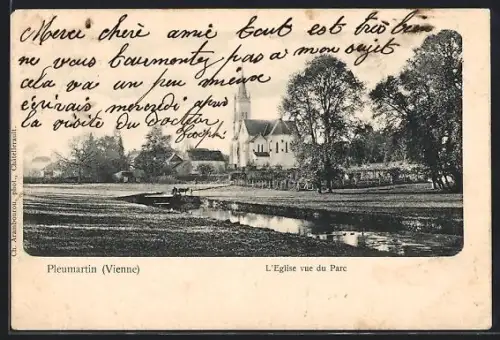 Merci chère amie tout est très bien
ne vous tourmentez pas a mon sujet
cela va un peu mieux
écrirais mercredi après
la visite du Docteur
Joseph
Ch. Arambourou, phot., Châtellerault.
Pleumartin (Vienne)
L'Eglise vue du Parc